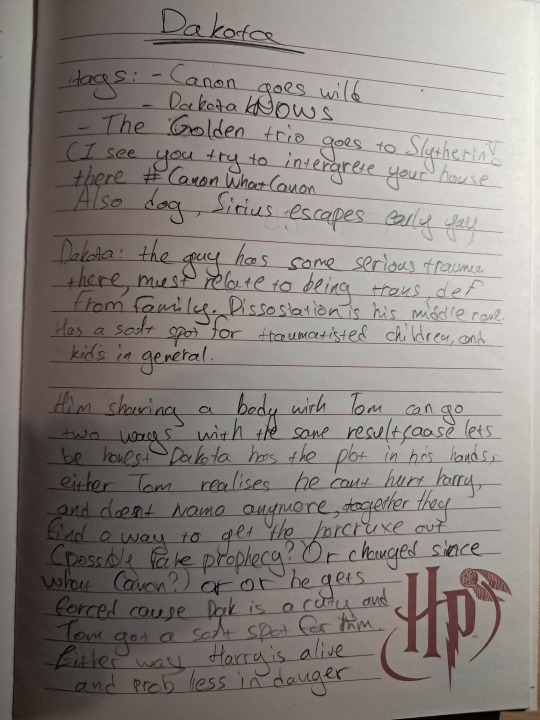 Dakota
tags: - Canon goes wild
- Dakota KNOWS
- The Golden trio goes to Slytherin
(I see you try to intergrete your house
there #CanonWhatCanon
Also dog, Sirius escapes early yay
Dakota: the guy has some serious trauma
there, must relate to being trans, def
from family. Dissosiation is his middle name.
Has a soft spot for traumatisted children, and
kids in general.
Him sharing a body with Tom can go
two ways with the same result, cause lets
be honest Dakota has the plot in his hands,
either Tom realises he cant hurt harry,
and doesnt wanna anymore, together they
find a way to get the horcruxe out
(possible fake prophecy? Or changed since
what Canon?) or or he gets
forced cause Dak is a cuty and
Tom got a soft spot for him.
Either way Harry is alive
and prob less in danger
HP